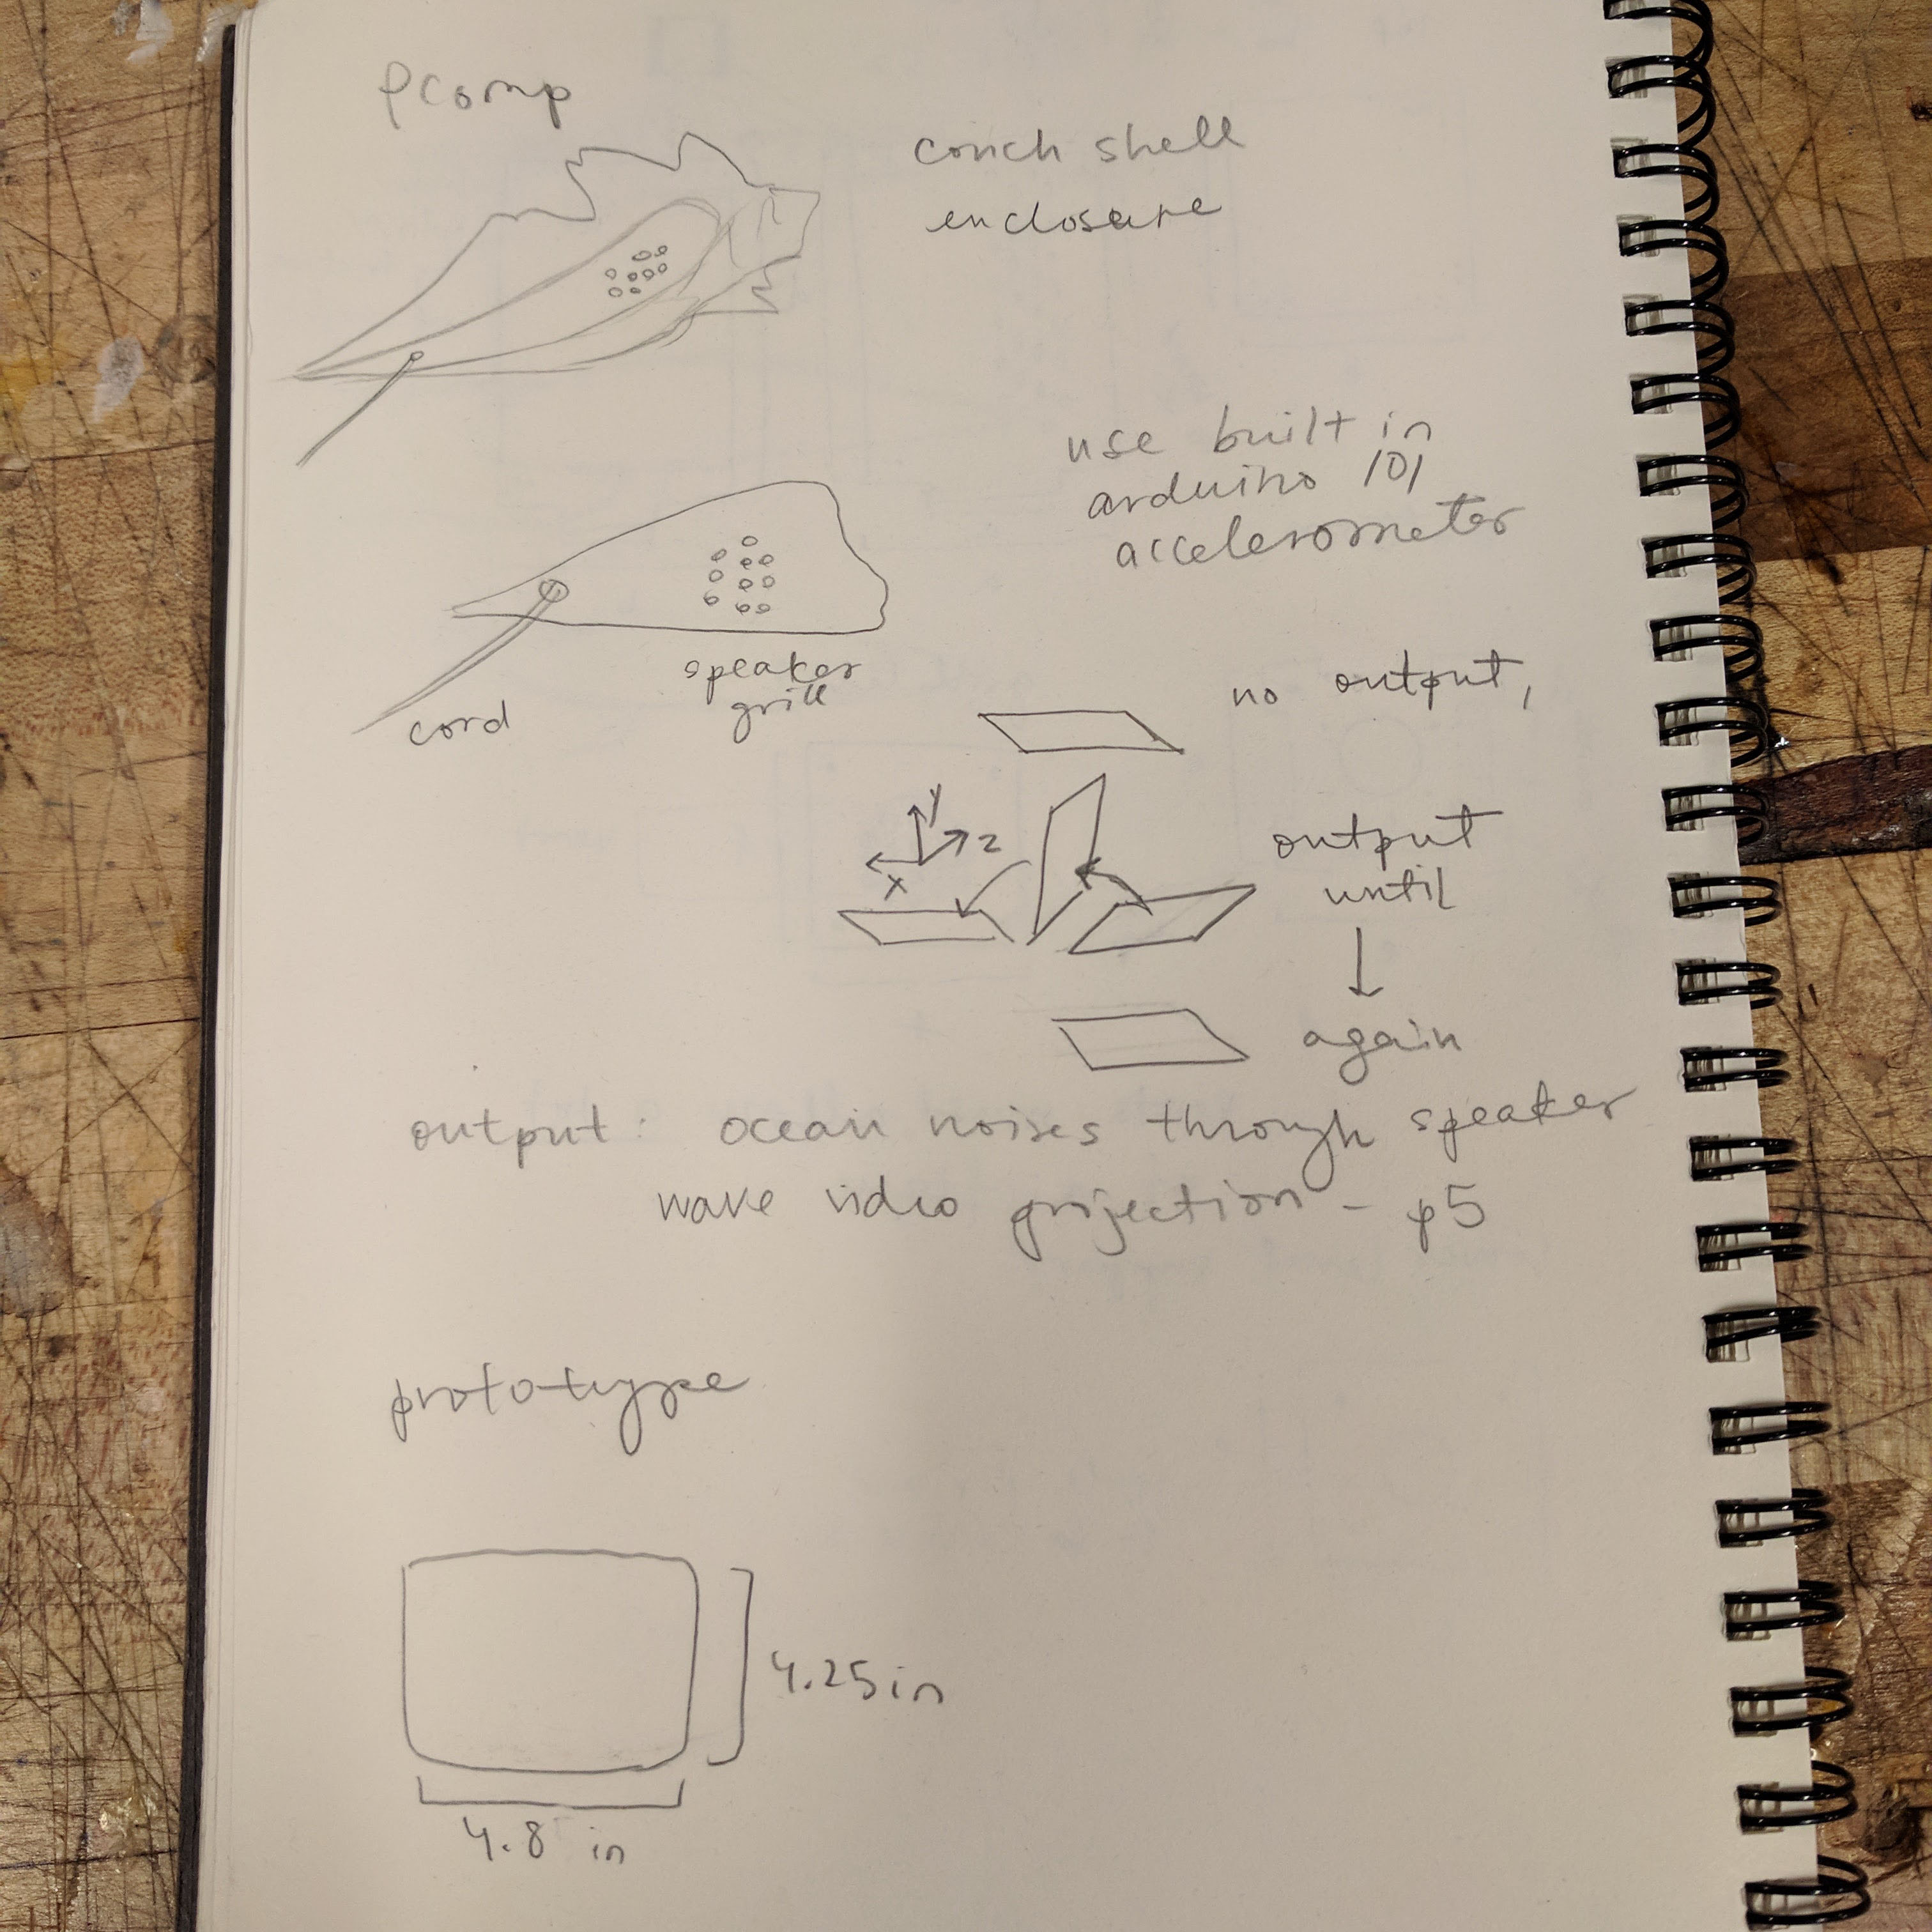 pcomp
conch shell
enclosure
use built in
arduino 101
accelerometer
speaker
grill
cord
no output,
y
z
x
output
until
again
output: ocean noises through speaker
wave video projection - p5
prototype
4.25in
4.8 in